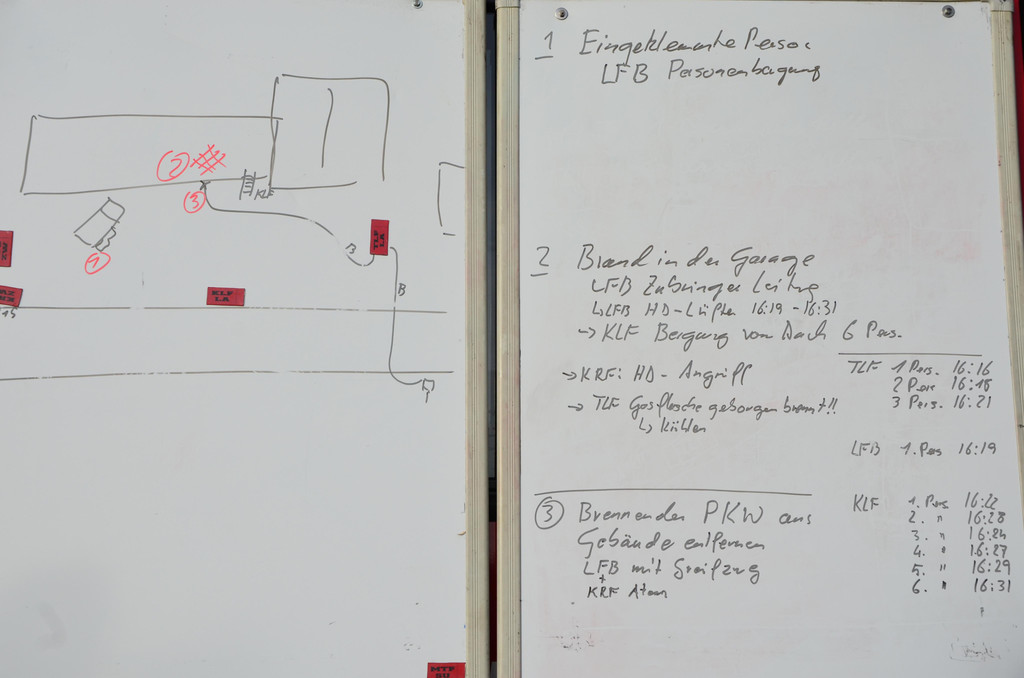 2
3
KLF
1
B
TLF
LA
B
KLF
LA
MTF
SU
1 Eingeklemmte Person
LFB Personenbergung
2 Brand in der Garage
LFB Zubringer Leitung
↳ LFB HD-Lüfter 16:19 - 16:31
→ KLF Bergung vom Dach 6 Pers.
→ KRF: HD-Angriff
→ TLF Gasflasche geborgen brennt!!
↳ Kühlen
TLF 1 Pers. 16:16
2 Pers 16:18
3 Pers. 16:21
LFB 1. Pers 16:19
3 Brennenden PKW aus
Gebäude entfernen
LFB mit Greifzug
+
KRF Atem
KLF 1. Pers 16:22
2. " 16:28
3. " 16:24
4. " 16:27
5. " 16:29
6. " 16:31
?